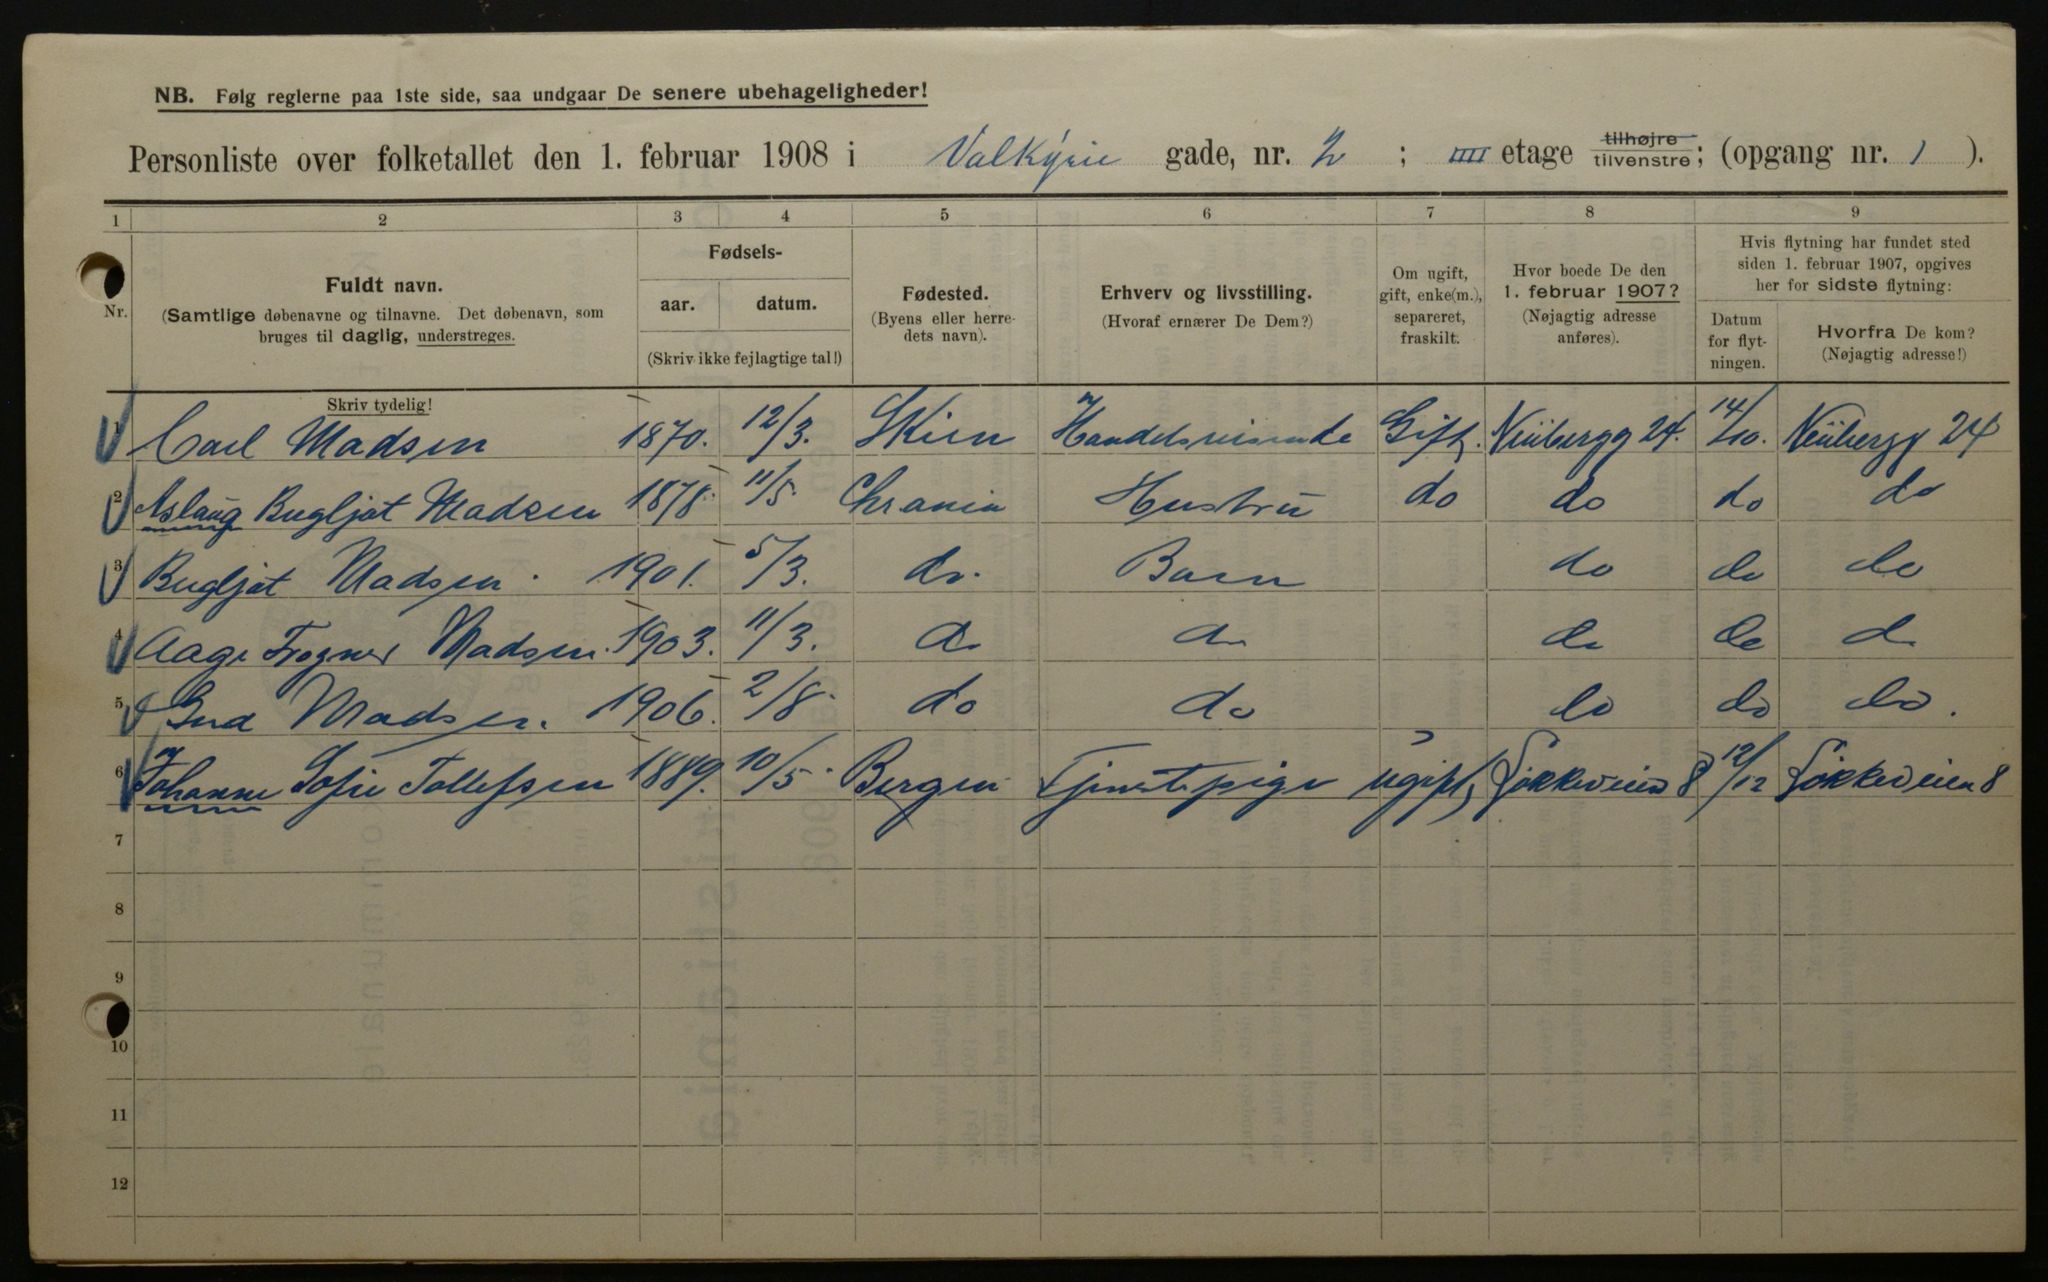 NB. Følg reglerne paa 1ste side, saa undgaar De senere ubehageligheder!
Personliste over folketallet den 1. februar 1908 i Valkyrie gade, nr. 2 ; IIII etage tilhøjre tilvenstre; (opgang nr. 1 ).
1 2 3 4 5 6 7 8 9
Nr. Fuldt navn. (Samtlige døbenavne og tilnavne. Det døbenavn, som bruges til daglig, understreges. Skriv tydelig!
Fødsels- aar. datum. (Skriv ikke fejlagtige tal!)
Fødested. (Byens eller herredets navn).
Erhverv og livsstilling. (Hvoraf ernærer De Dem?)
Om ugift, gift, enke(m.), separeret, fraskilt.
Hvor boede De den 1. februar 1907? (Nøjagtig adresse anføres).
Hvis flytning har fundet sted siden 1. februar 1907, opgives her for sidste flytning:
Datum for flytningen.
Hvorfra De kom? (Nøjagtig adresse!)
1 Carl Madsen 1870. 12/3. Skien Handelsreisende Gift. Neübergg 24. 14/10. Neübergg 24
2 Aslaug Bugljot Madsen 1878. 11/5. Chrania Hustru do do do do
3 Bugljot Madsen. 1901. 5/3. do. Barn do do do
4 Aage Frogner Madsen. 1903. 11/3. do do do do do
5 Gerd Madsen. 1906. 2/8. do do do do do.
6 Johanne Sofie Tollefsen 1889. 10/5. Bergen Tjenestepige ugift, Løkkeveien 8 12/12 Løkkeveien 8
7
8
9
10
11
12